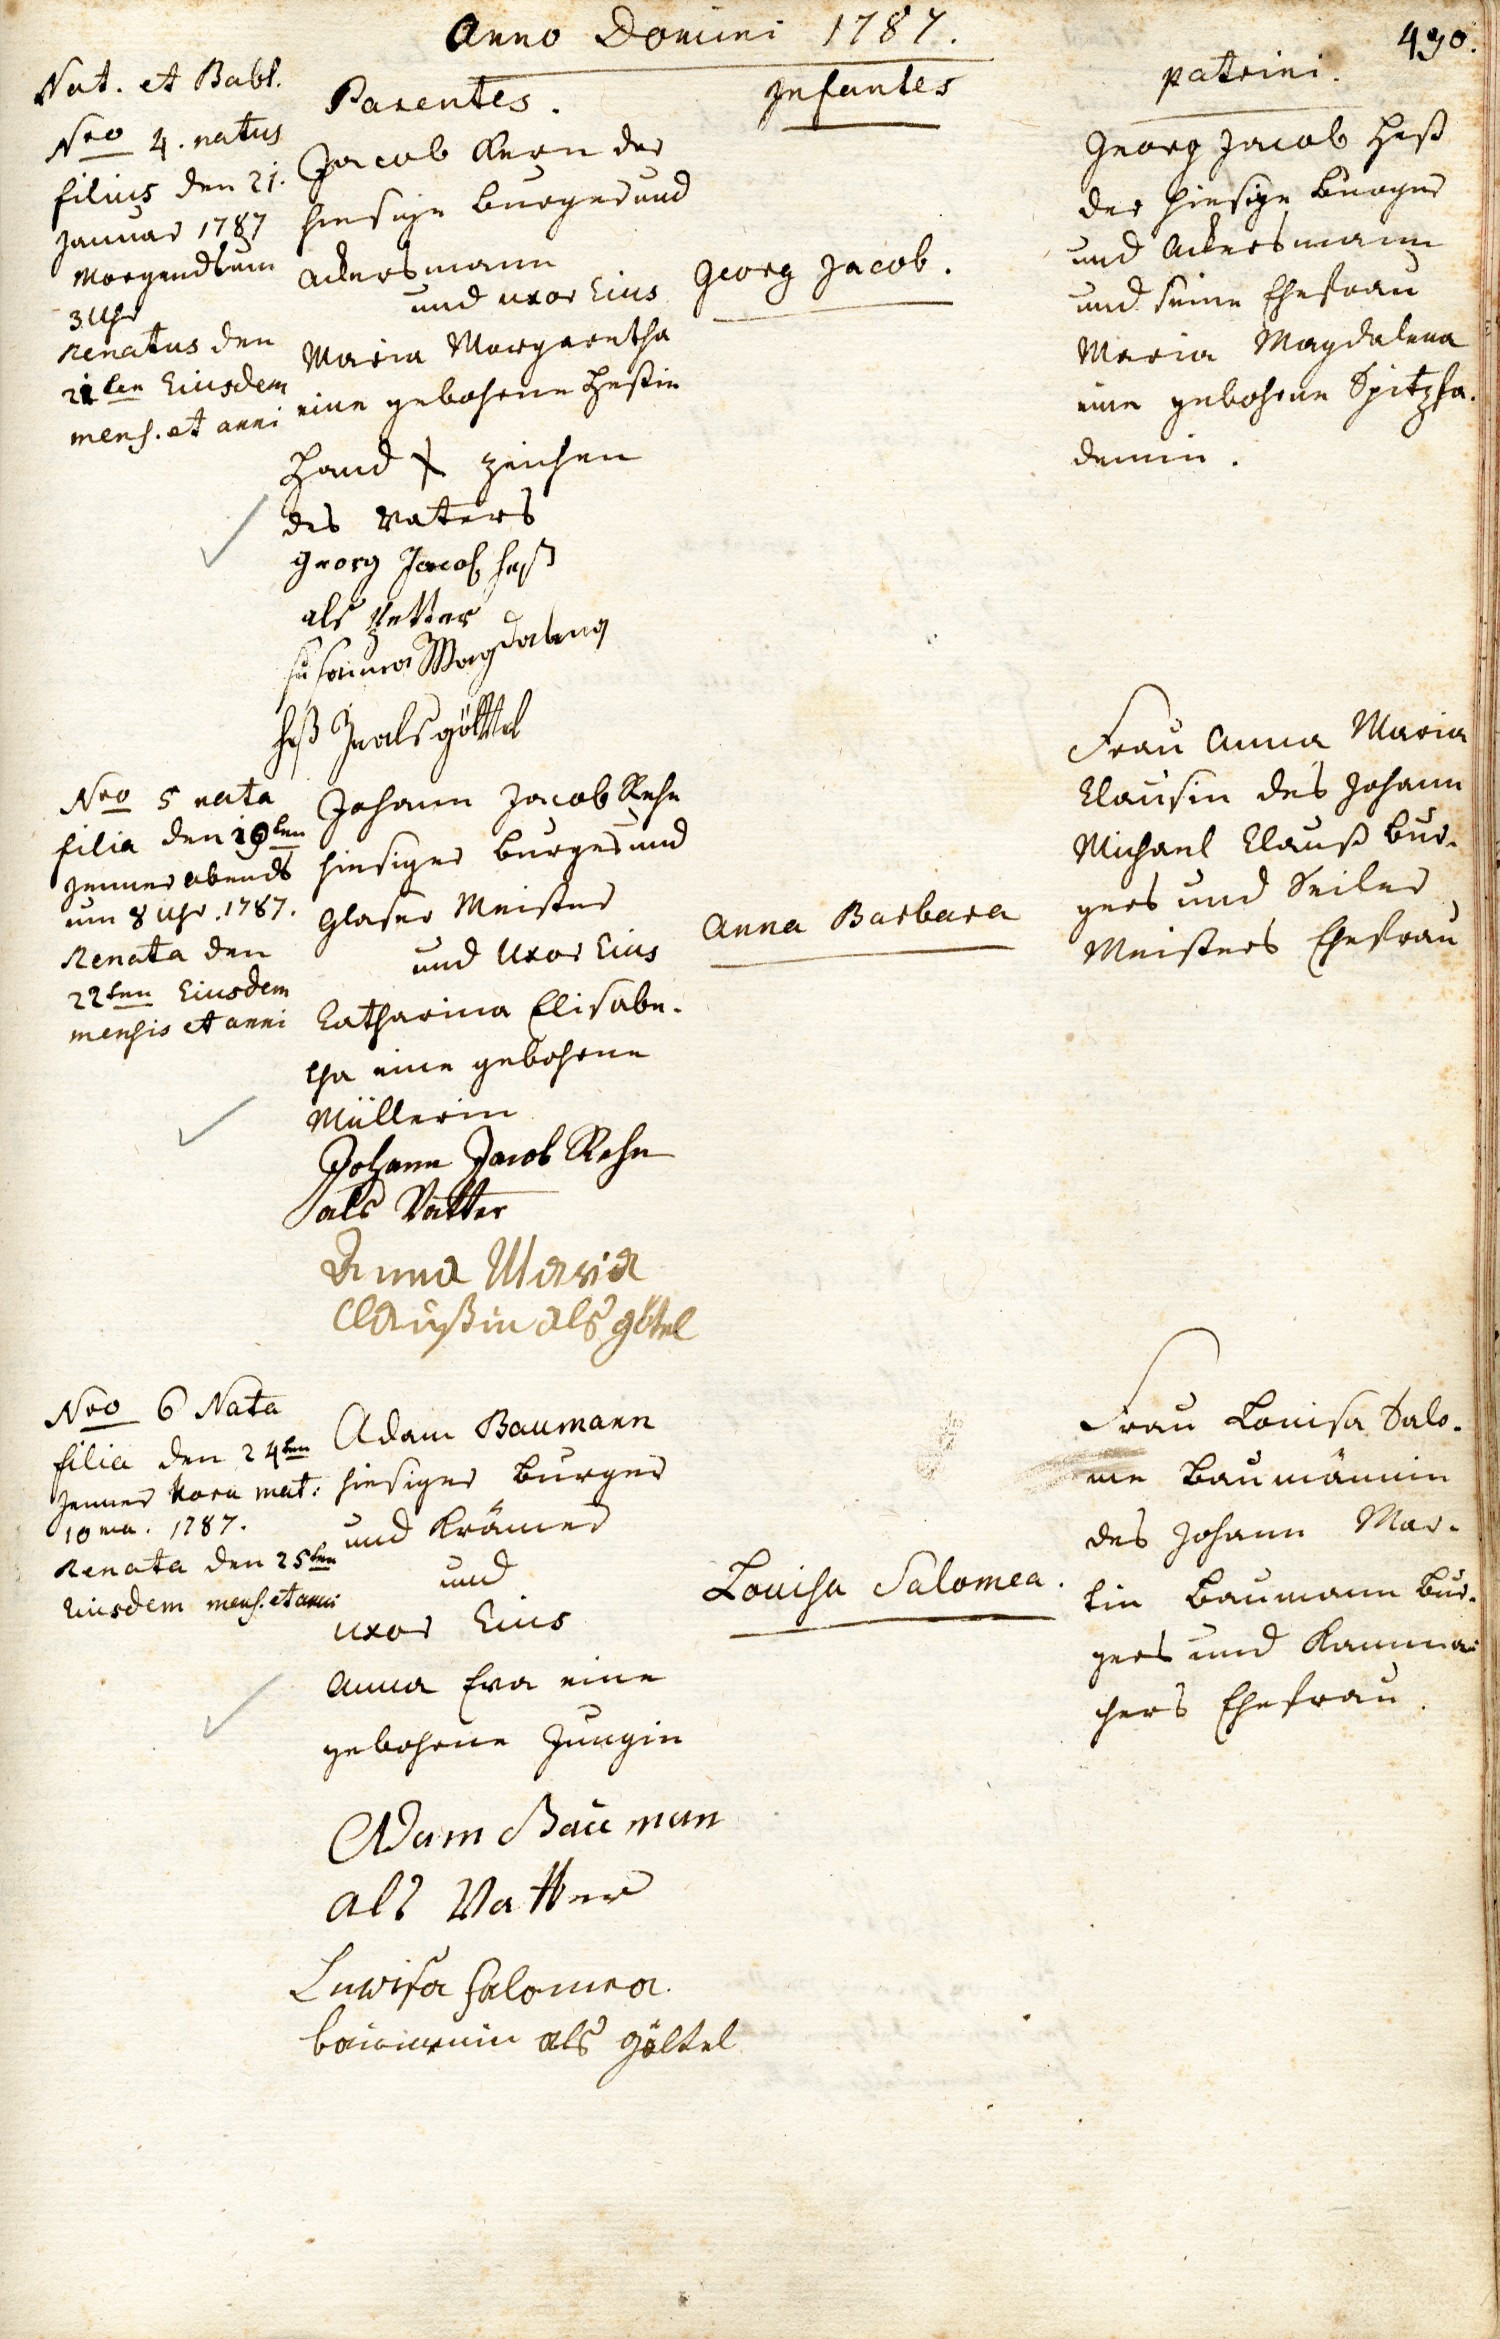 Anno Domini 1787.
490.
Nat. et Babt.
Parentes.
Infantes
patrini.
Nro 4. natus
filius den 21.
Januar 1787
Morgends um
3 Uhr
Renatus den
21ten Eiusdem
mens. et anni
Jacob Kern der
hiesige burger und
Ackersmann
und uxor Eius
Maria Margaretha
eine gebohrne Heßin
Hand + zeichen
des Vaters
georg Jacob heß
als Petter
susanna Magdalena
heß als göttel
Georg Jacob.
Georg Jacob Heß
der hiesige Burger
und Ackersmann
und seine Ehefrau
Maria Magdalena
eine gebohrne Spitzfa-
demin.
Nro 5 nata
filia den 19ten
Jenner abends
um 8 Uhr. 1787.
Renata den
22ten Eiusdem
mensis et anni
Johann Jacob Rehn
hiesiger burger und
Glaser Meister
und Uxor Eius
Catharina Elisabe-
tha eine gebohrne
Müllerin
Johann Jacob Rehn
als Vatter
Anna Maria
Claußin als götel
Anna Barbara
Frau Anna Maria
Clausin des Johann
Michael Clauß bur-
gers und Seiler
Meisters Ehefrau
Nro 6 Nata
filia den 24ten
Jenner hora mat:
10ma. 1787.
Renata den 25ten
Eiusdem mens. et anni
Adam Baumann
hiesiger burger
und Krämer
und
uxor Eius
Anna Eva eine
gebohrne Jungin
Adam Bauman
als Vatter
Luwisa salomea
als göltel
Louisa Salomea.
Frau Louisa Salo-
me Baumännin
des Johann Mar-
tin Baumann bur-
gers und Kamma-
chers Ehefrau.